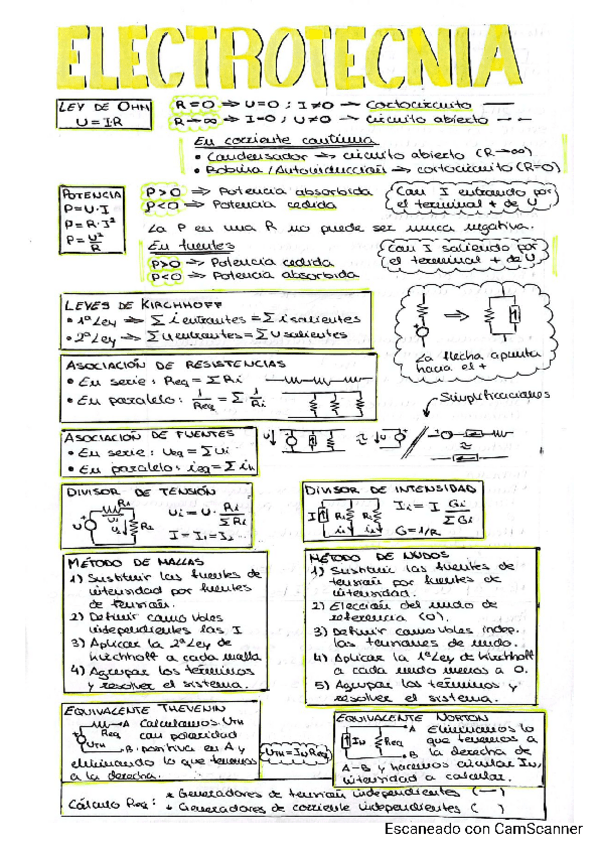 ELECTROTECNIA
LEY DE OHM
U = I·R
R = 0 ⇒ U = 0 ; I ≠ 0 → cortocircuito
R → ∞ ⇒ I = 0 ; U ≠ 0 → circuito abierto
En corriente continua
• Condensador → circuito abierto (R→∞)
• Bobina / Autoinducción → cortocircuito (R=0)
POTENCIA
P = U·I
P = R·I²
P = U²/R
P>0 ⇒ Potencia absorbida
P<0 ⇒ Potencia cedida
Con I entrando por
el terminal + de U
La P en una R no puede ser nunca negativa.
En fuentes
P>0 → Potencia cedida
P<0 ⇒ Potencia absorbida
Con I saliendo por
el terminal + de U
LEYES DE KIRCHHOFF
• 1ª Ley → Σ i entrantes = Σ i salientes
• 2ª Ley → Σ U entrantes = Σ U salientes
La flecha apunta
hacia el +
ASOCIACIÓN DE RESISTENCIAS
• En serie: Req = Σ Ri
• En paralelo: 1/Req = Σ 1/Ri
Simplificaciones
ASOCIACIÓN DE FUENTES
• En serie: Ueq = Σ Ui
• En paralelo: ieq = Σ in
U ≈ U
≈
DIVISOR DE TENSIÓN
U R1 U1 U2 R2
Ui = U · Ri/ΣRi
I = I1 = I2...
DIVISOR DE INTENSIDAD
I R1 R2 i1 i2
Ii = I Gi/ΣGi
G = 1/R
MÉTODO DE MALLAS
1) Sustituir las fuentes de
intensidad por fuentes
de tensión.
2) Definir como vbles
independientes las I
3) Aplicar la 2ª Ley de
Kirchhoff a cada malla
4) Agrupar los términos
y resolver el sistema.
MÉTODO DE NUDOS
1) Sustituir las fuentes de
tensión por fuentes de
intensidad.
2) Elección del nudo de
referencia (0).
3) Definir como vbles indep.
las tensiones de nudo.
4) Aplicar la 1ª Ley de Kirchhoff
a cada nudo menos a 0.
5) Agrupar los términos y
resolver el sistema.
EQUIVALENTE THEVENIN
A Calculamos UTH
Req con polaridad
UTH B positiva en A y
eliminando lo que tenemos
a la derecha.
UTH = IN Req
EQUIVALENTE NORTON
A Eliminamos lo
IN Req que tenemos a
B la derecha de
A-B y hacemos circular IN,
intensidad a calcular.
Cálculo Req:
* Generadores de tensión independientes (—)
* Generadores de corriente independientes ( )
Escaneado con CamScanner